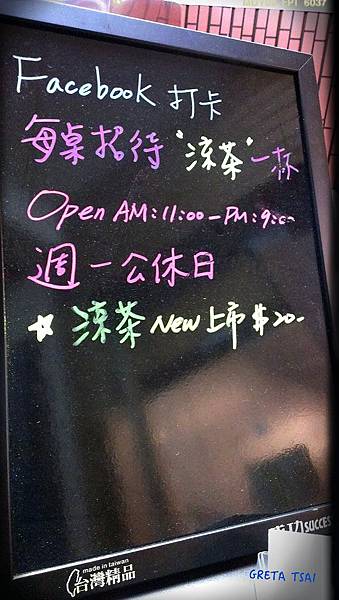 Facebook 打卡
每桌招待"涼茶"一杯
Open AM:11:00-PM:9:00
週一公休日
☆ 涼茶 New 上市 $20-
made in taiwan
台灣精品
成功 SUCCESS
GRETA TSAI